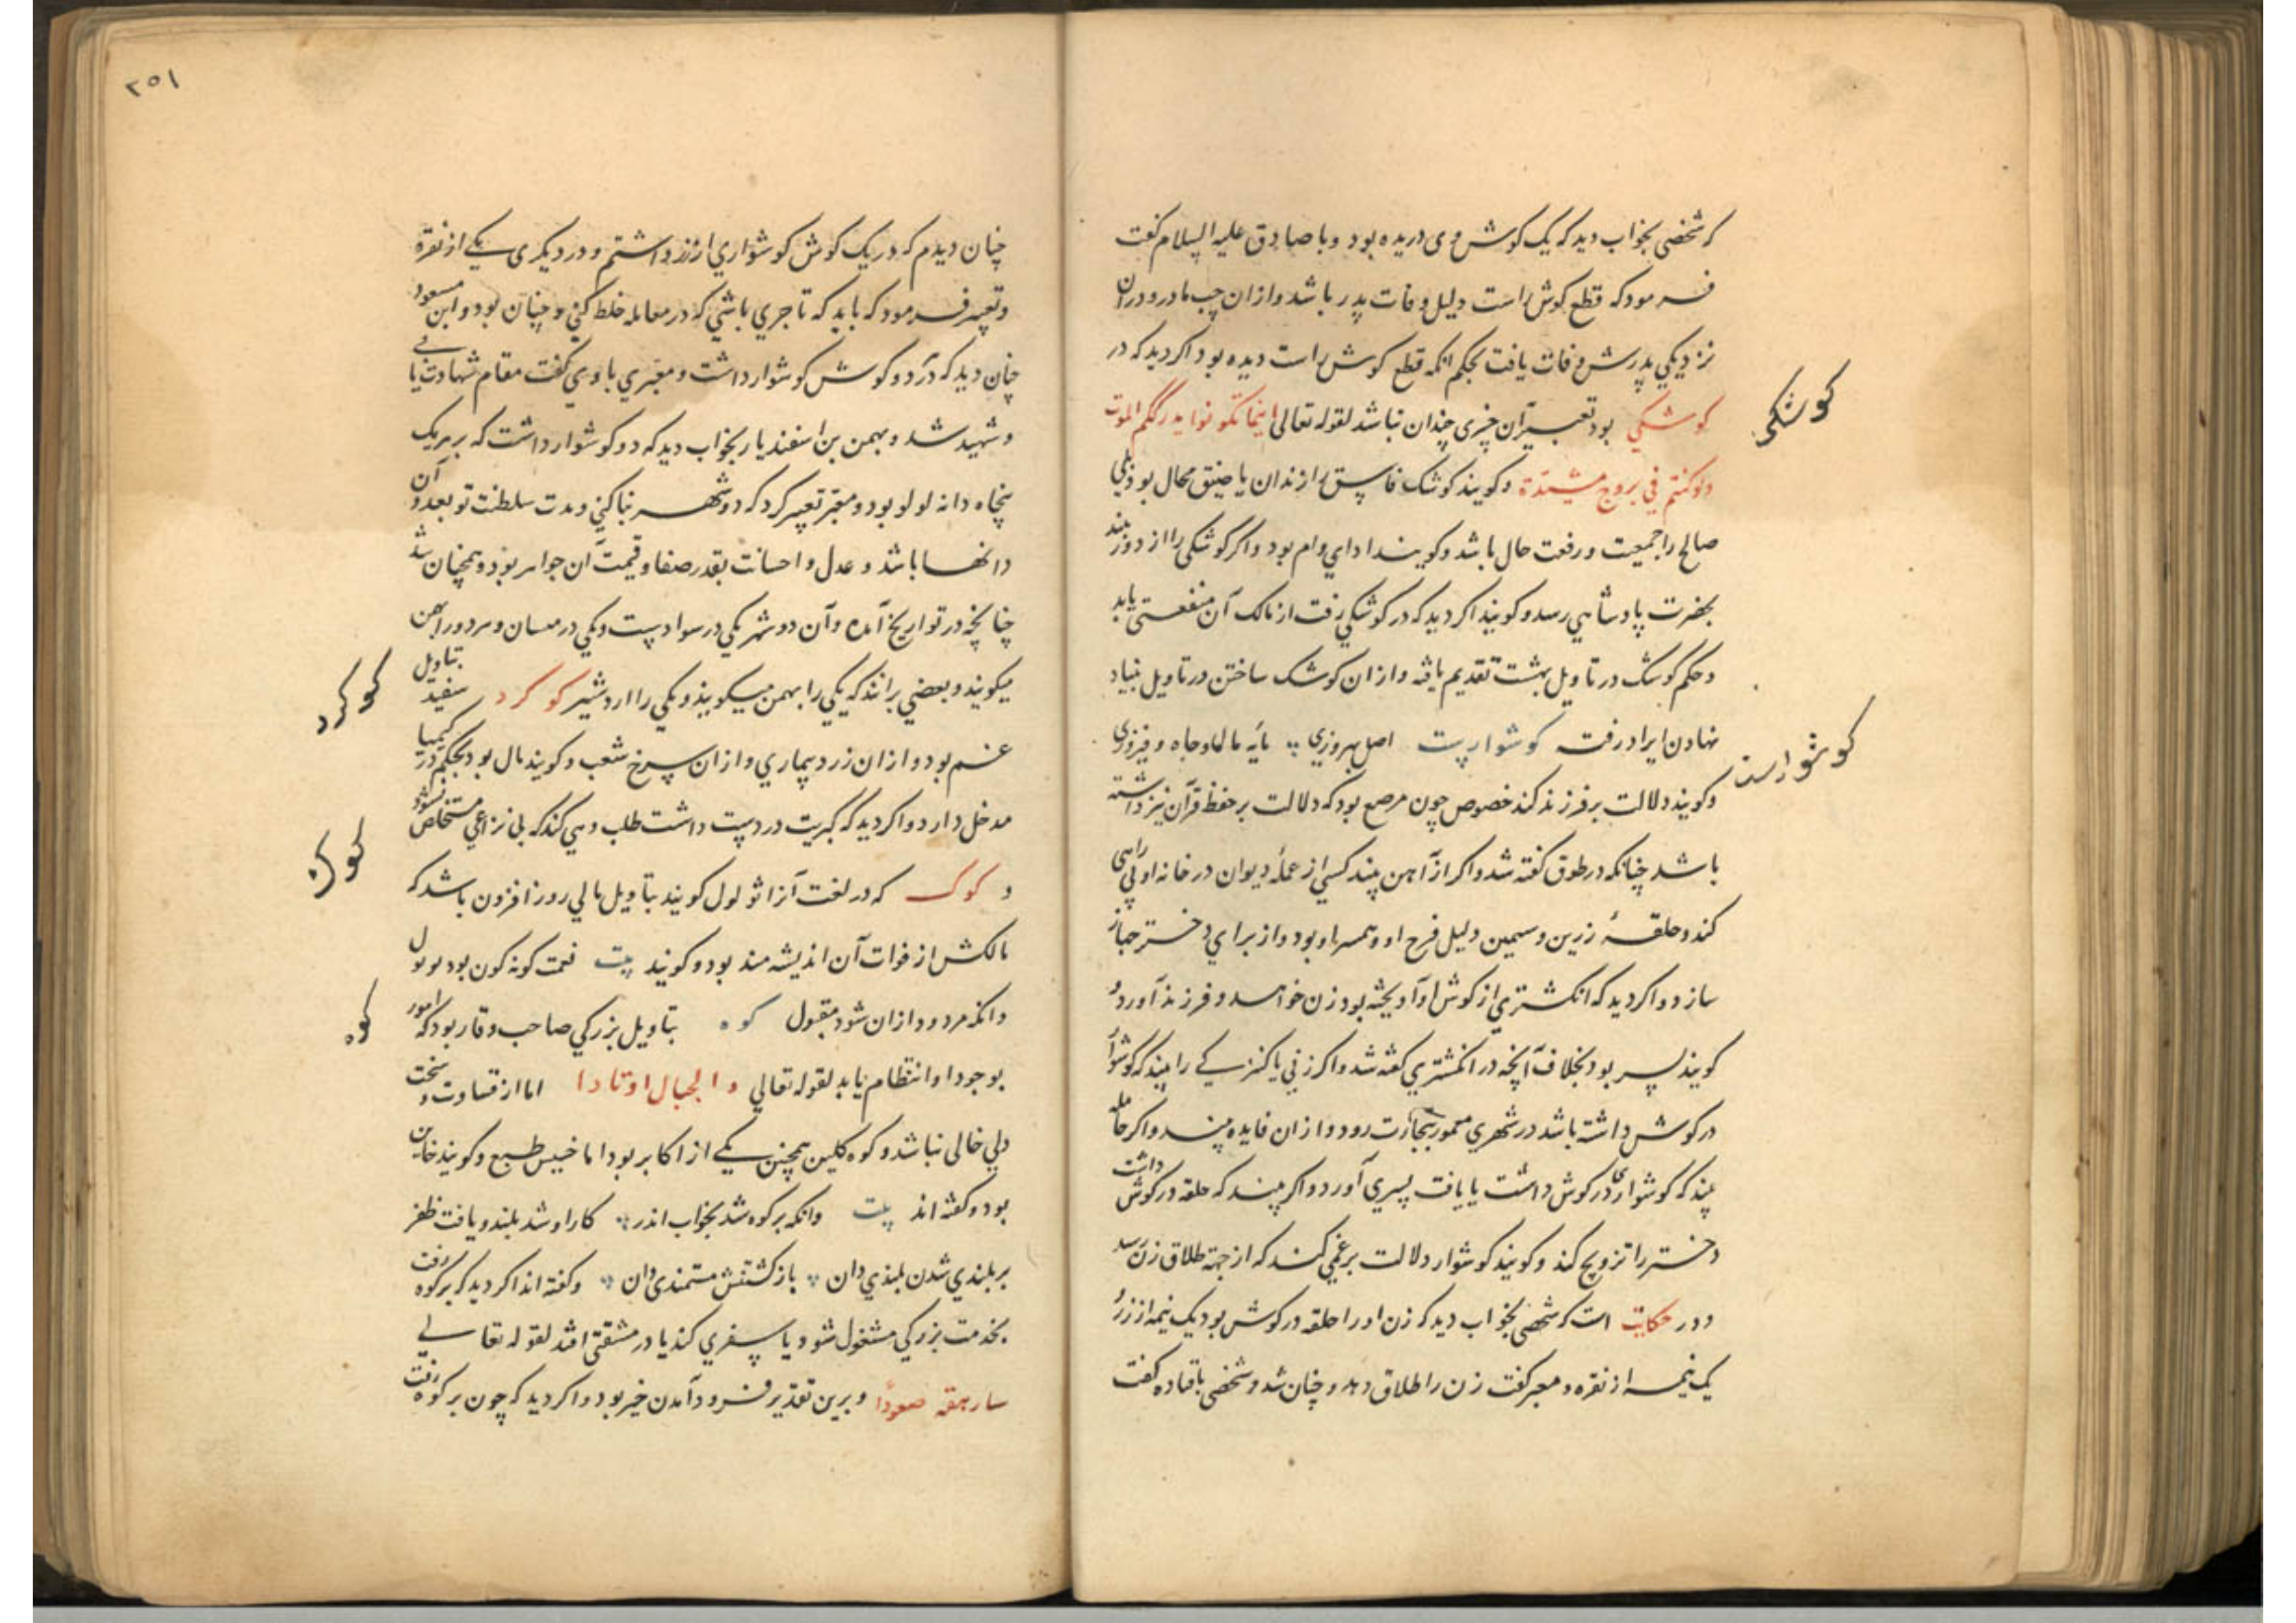 که شخصی بخواب دید که یک گوش وی دریده بود و با صادق علیه السلام گفت
فرمود که قطع گوش راست دلیل وفات پدر باشد و از ان چپ مادر و در ان
نزدیکی پدرش وفات یافت بحکم انکه قطع گوش راست دیده بود اگر دید که در
کوشکی
کوشکی بود تعبیر آن چیزی چندان نباشد لقوله تعالی اینما تکونوا یدرککم الموت
ولوکنتم فی بروج مشیدة و کویند کوشک فاسق را زندان یا ضیق محال بود ولی
صالح را جمعیت و رفعت حال باشد و کویند ادای وام بود و اگر کوشکی را از دور بیند
بحضرت پادشاهی رسد و کویند اگر دید که در کوشکی رفت از مالک آن منفعتی یابد
و حکم کوشک در تاویل بهشت تقدیم یافته و از ان کوشک ساختن در تاویل بنیاد
کوشوارست
نهادن ایراد رفت کوشوار بیت اصل بهروزی پایه مالها و جاه و فیروزی
و کویند دلالت بر فرزند کند خصوص چون مرصع بود که دلالت بر حفظ قرآن نیز داشته
باشد چنانکه در طوق گفته شد و اگر از آهن بیند کسی از عملهٔ دیوان در خانه او راهی
کند و حلقهٔ زرین و سیمین دلیل فرح او و همسر او بود و از برای دختر جهاز
سازد و اگر دید که انگشتری از گوش او آویخته بود زن خواهد و فرزند آورد و
کویند پسر بود بخلاف آنچه در انگشتری گفته شد و اگر زنی یا کنیزکی را بیند که گوشوار
در گوش داشته باشد در شهری معمور بتجارت رود و از ان فایده بیند و اگر حامله
بیند که گوشواری در گوش داشت یا یافت پسری آورد و اگر بیند که حلقه در گوش داشت
دختر را تزویج کند و کویند گوشوار دلالت بر غمی کند که از جهة طلاق زن رسد
و در حکایت است که شخصی بخواب دید که زن او را حلقه در گوش بود یک نیمه از زر و
یک نیمه از نقره و معبر گفت زن را طلاق دهد و چنان شد و شخصی با قتاده گفت
۲۵۱
چنان دیدم که در یک گوش گوشواری از زر داشتم و در دیگری یکی از نقره
و تعبیر فرمود که باید که تاجری باشی که در معامله خلط کنی و چنان بود و ابن مسعود
چنان دید که در دو گوش گوشوار داشت و معبری با وی گفت مقام شهادت یابی
و شهید شد و بهمن بن اسفندیار بخواب دید که دو گوشوار داشت که بر هر یک
پنجاه دانه لولو بود و معبر تعبیر کرد که دو شهر بنا کنی و مدت سلطنت تو بعدد آن
دانها باشد و عدل و احسانت بقدر صفا و قیمت آن جواهر بود و همچنان شد
چنانچه در تواریخ آمده و آن دو شهر یکی در سواد و یکی در میسان و هر دو را بهمن
کوکرد
میکویند و بعضی برانند که یکی را بهمن میکویند و یکی را اردشیر کوکرد سفید بتاویل
غم بود و از ان زرد بیماری و از ان سرخ شعب و کویند مال بود بحکم در کیمیا
مدخل دارد و اگر دید که کبریت در دست داشت طلب وهی کند که بی نزاعی مستخلص نشود
کوک
و کوک که در لغت آنرا ثولول کویند بتاویل مالی روز افزون باشد که
مالکش از فوات آن اندیشه مند بود و کویند بیت نعمت کونه کون بود ثولول
کوه
وانکه مردود از ان شود مقبول کوه بتاویل بزرگی صاحب وقار بود که امور
بوجود او انتظام یابد لقوله تعالی والجبال اوتادا اما از قساوت و سخت
دلی خالی نباشد و کوه گلین همچنین یکی از اکابر بود اما خسیس طبع و کویند خاین
بود و گفته اند بیت وانکه بر کوه شد بخواب اندر کار او شد بلند و یافت ظفر
بر بلندی شدن بلندی دان باز گشتنش مستمندی دان و گفته اند اگر دید که بر کوه رفت
بخدمت بزرگی مشغول شود یا سفری کند یا در مشقتی افتد لقوله تعالی
سارهقه صعودا و برین تقدیر فرود آمدن خیر بود و اگر دید که چون بر کوه رفت